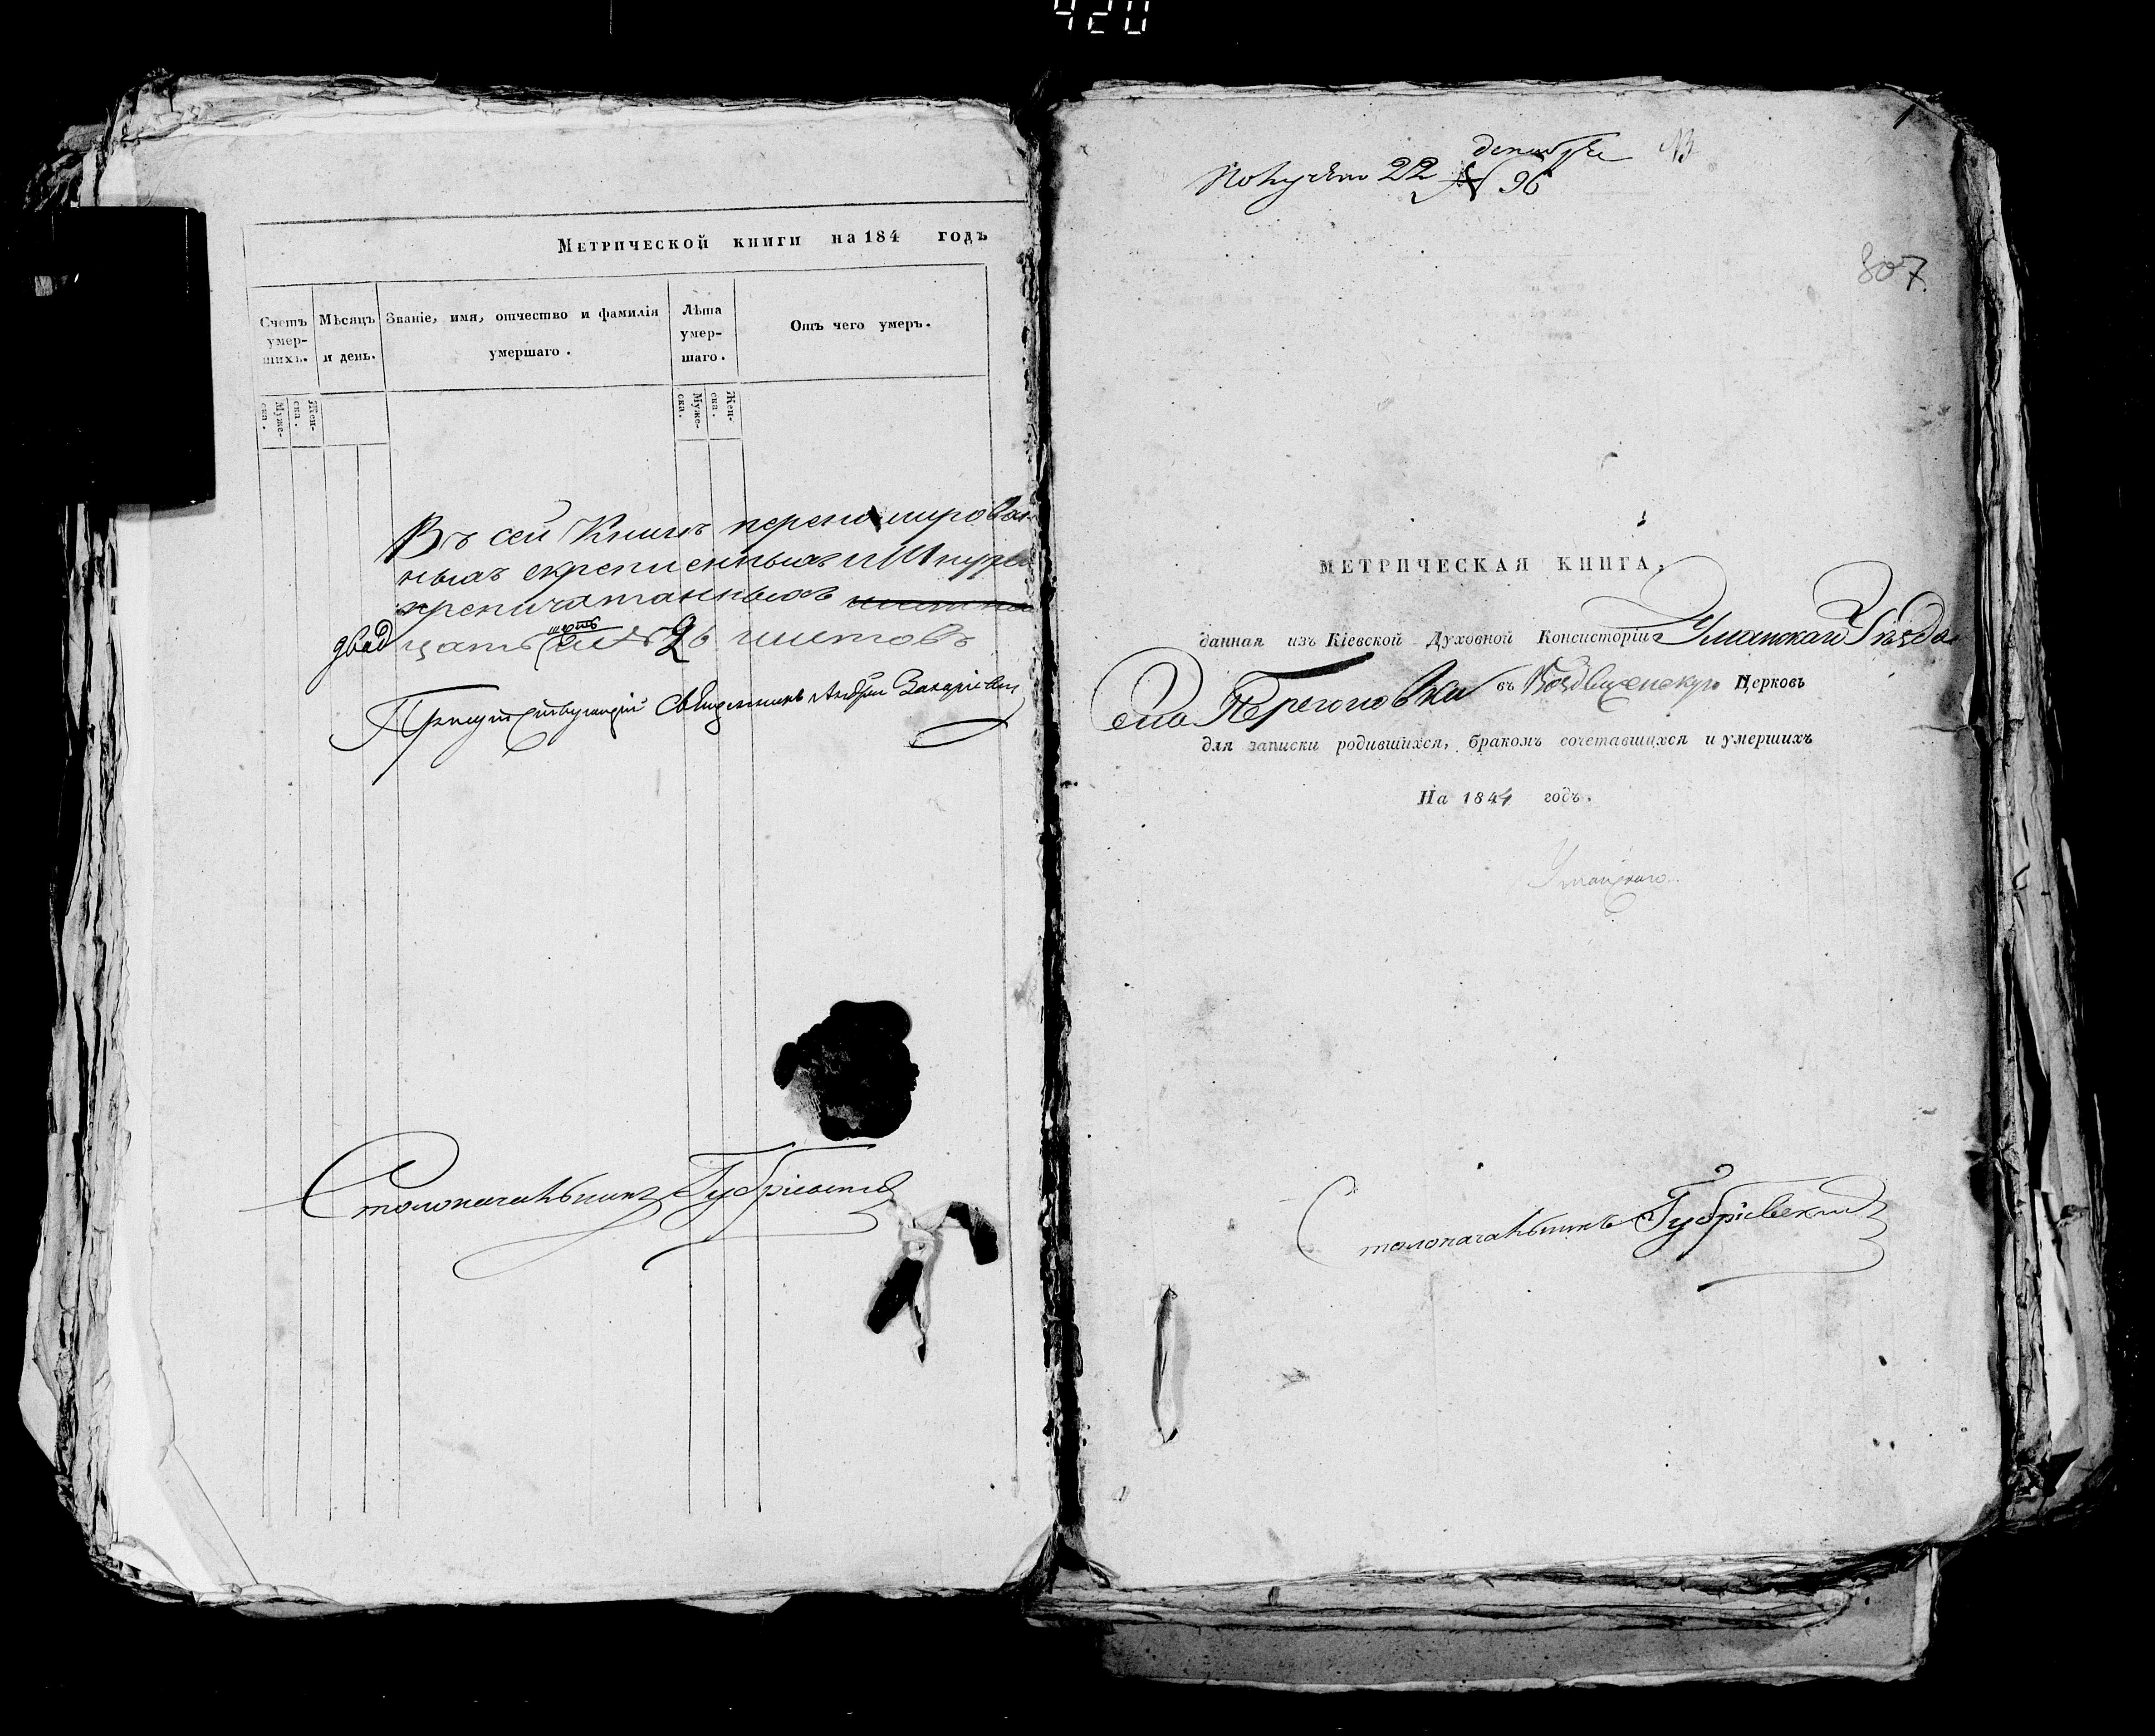 420
Метрической книги на 184 годъ
Счетъ умер-
шихъ.
Мѣсяцъ
и день.
Званіе, имя, отчество и фамилія
умершаго.
Лѣта
умер-
шаго.
Отъ чего умеръ.
Муже-
ска.
Жен-
ска.
Муже-
ска.
Жен-
ска.
Въ сей Книгѣ перенумерован
ныхъ скрепленныхъ и Шнуро
препичатанныхъ
двадцать шесть 26 листовъ
Присутствующій Священникъ Андрей
Столоначальникъ
Получено 22 декабря 96
807
МЕТРИЧЕСКАЯ КНИГА,
данная изъ Кіевской Духовной Консисторіи Уманскаго Уѣзда
Села Перегоновки въ Воздвиженскую Церковь
для записки родившихся, бракомъ сочетавшихся и умершихъ
На 1844 годъ.
Уманскаго
Столоначальникъ Губріевскій